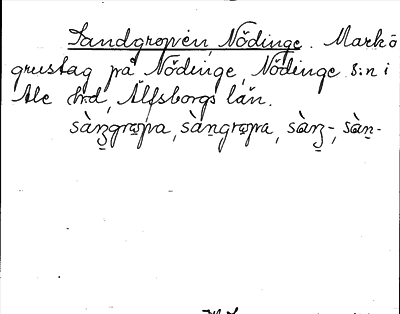 Sandgropen, Nödinge. Mark ö
grustag på Nödinge, Nödinge s:n i
Ale hrd, Älfsborgs län.
sàn̠gro̠pa, sàn̠gro̠pa, sàn̠-, sàn̠-